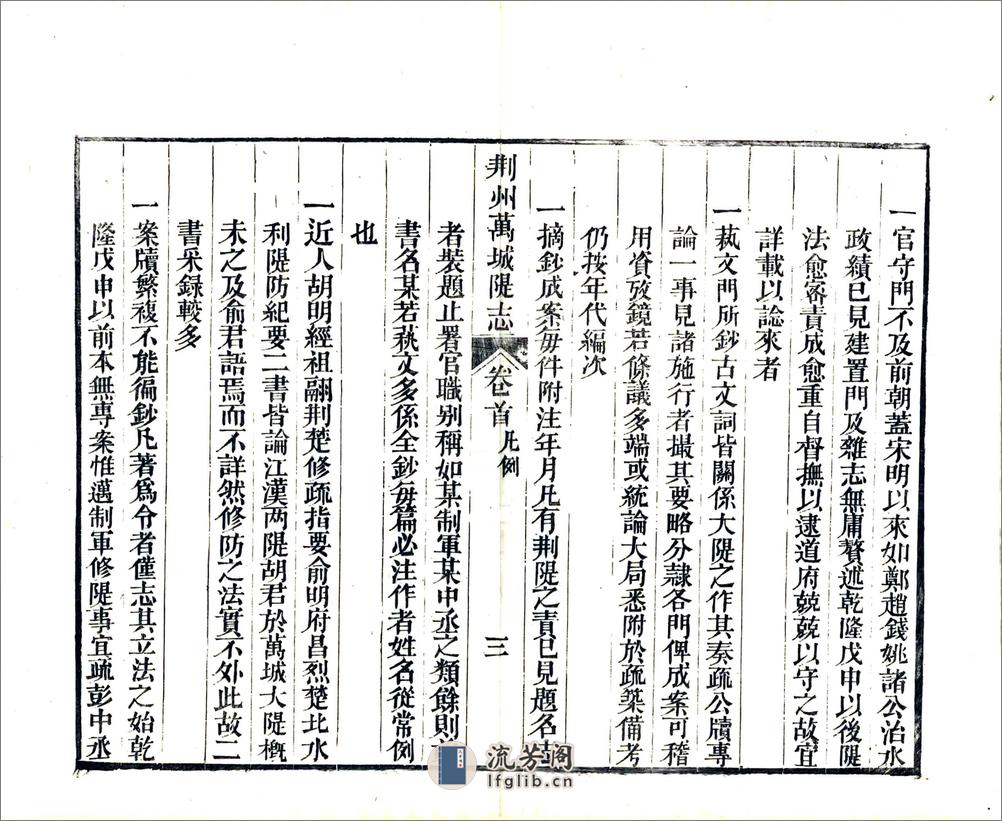 一官守門不及前朝蓋宋明以來如鄭趙錢姚諸公治水
政績已見建置門及雜志無庸贅述乾隆戊申以後隄
法愈密責成愈重自督撫以逮道府兢兢以守之故宜
詳載以諗來者
一蓺文門所鈔古文詞皆關係大隄之作其奏疏公牘專
論一事見諸施行者撮其要略分隸各門俾成案可稽
用資攷鏡若條議多端或統論大局悉附於疏築備考
仍按年代編次
一摘鈔成案每件附注年月凡有荆隄之責已見題名
荆州萬城隄志
卷首
凡例
三
者裝題止署官職別稱如某制軍某中丞之類餘則
書名某若蓺文多係全鈔每篇必注作者姓名從常例
也
一近人胡明經祖翮荆楚修疏指要俞明府昌烈楚北水
利隄防紀要二書皆論江漢两隄胡君於萬城大隄槪
未之及俞君語焉而不詳然修防之法實不外此故二
書采錄較多
一案牘繁複不能徧鈔凡著爲令者僅志其立法之始乾
隆戊申以前本無專案惟邁制軍修隄事宜疏彭中丞
流芳阁
lfglib.cn